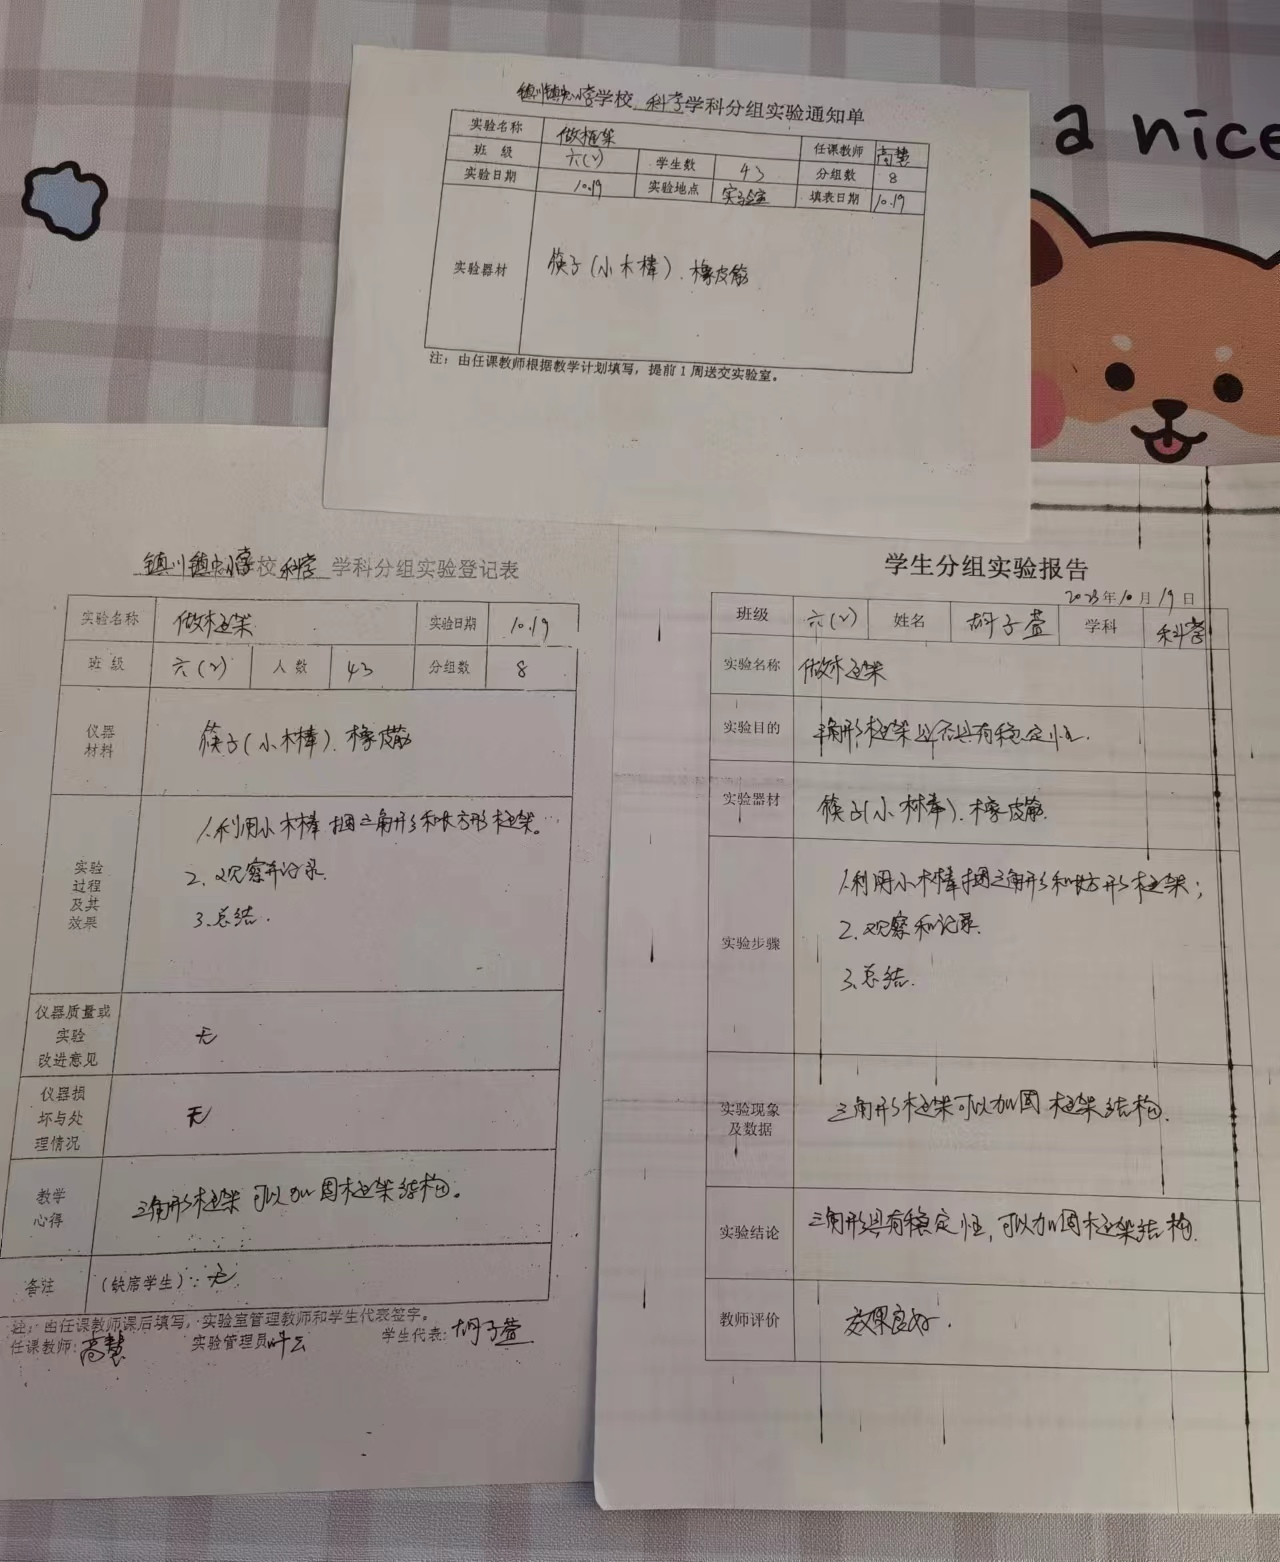 a nice
镇川镇中心小学学校 科学学科分组实验通知单
实验名称 做框架 任课教师 高慧
班 级 六(2) 学生数 43 分组数 8
实验日期 10.19 实验地点 实验室 填表日期 10.19
实验器材 筷子(小木棒).橡皮筋
注：由任课教师根据教学计划填写，提前1周送交实验室。
学科分组实验登记表
实验名称 做框架 实验日期 10.19
班 级 六(2) 人数 43 分组数 8
仪器
材料
筷子(小木棒).橡皮筋
实验
过程
及其
效果
1.利用小木棒捆三角形和长方形框架。
2.观察并记录.
3.总结.
仪器质量或
实验
改进意见
无
仪器损
坏与处
理情况
无
教学
心得
三角形框架可以加固框架结构。
备注 (缺席学生)：无
注：由任课教师课后填写，实验室管理教师和学生代表签字。
任课教师：高慧 实验管理员 学生代表：胡子萱
学生分组实验报告
2023年10月19日
班级 六(2) 姓名 胡子萱 学科 科学
实验名称 做框架
实验目的 三角形框架是否具有稳定性.
实验器材 筷子(小木棒).橡皮筋.
实验步骤
1.利用小木棒捆三角形和长方形框架；
2.观察和记录.
3.总结.
实验现象
及数据
三角形框架可以加固框架结构.
实验结论 三角形具有稳定性,可以加固框架结构.
教师评价 效果良好.